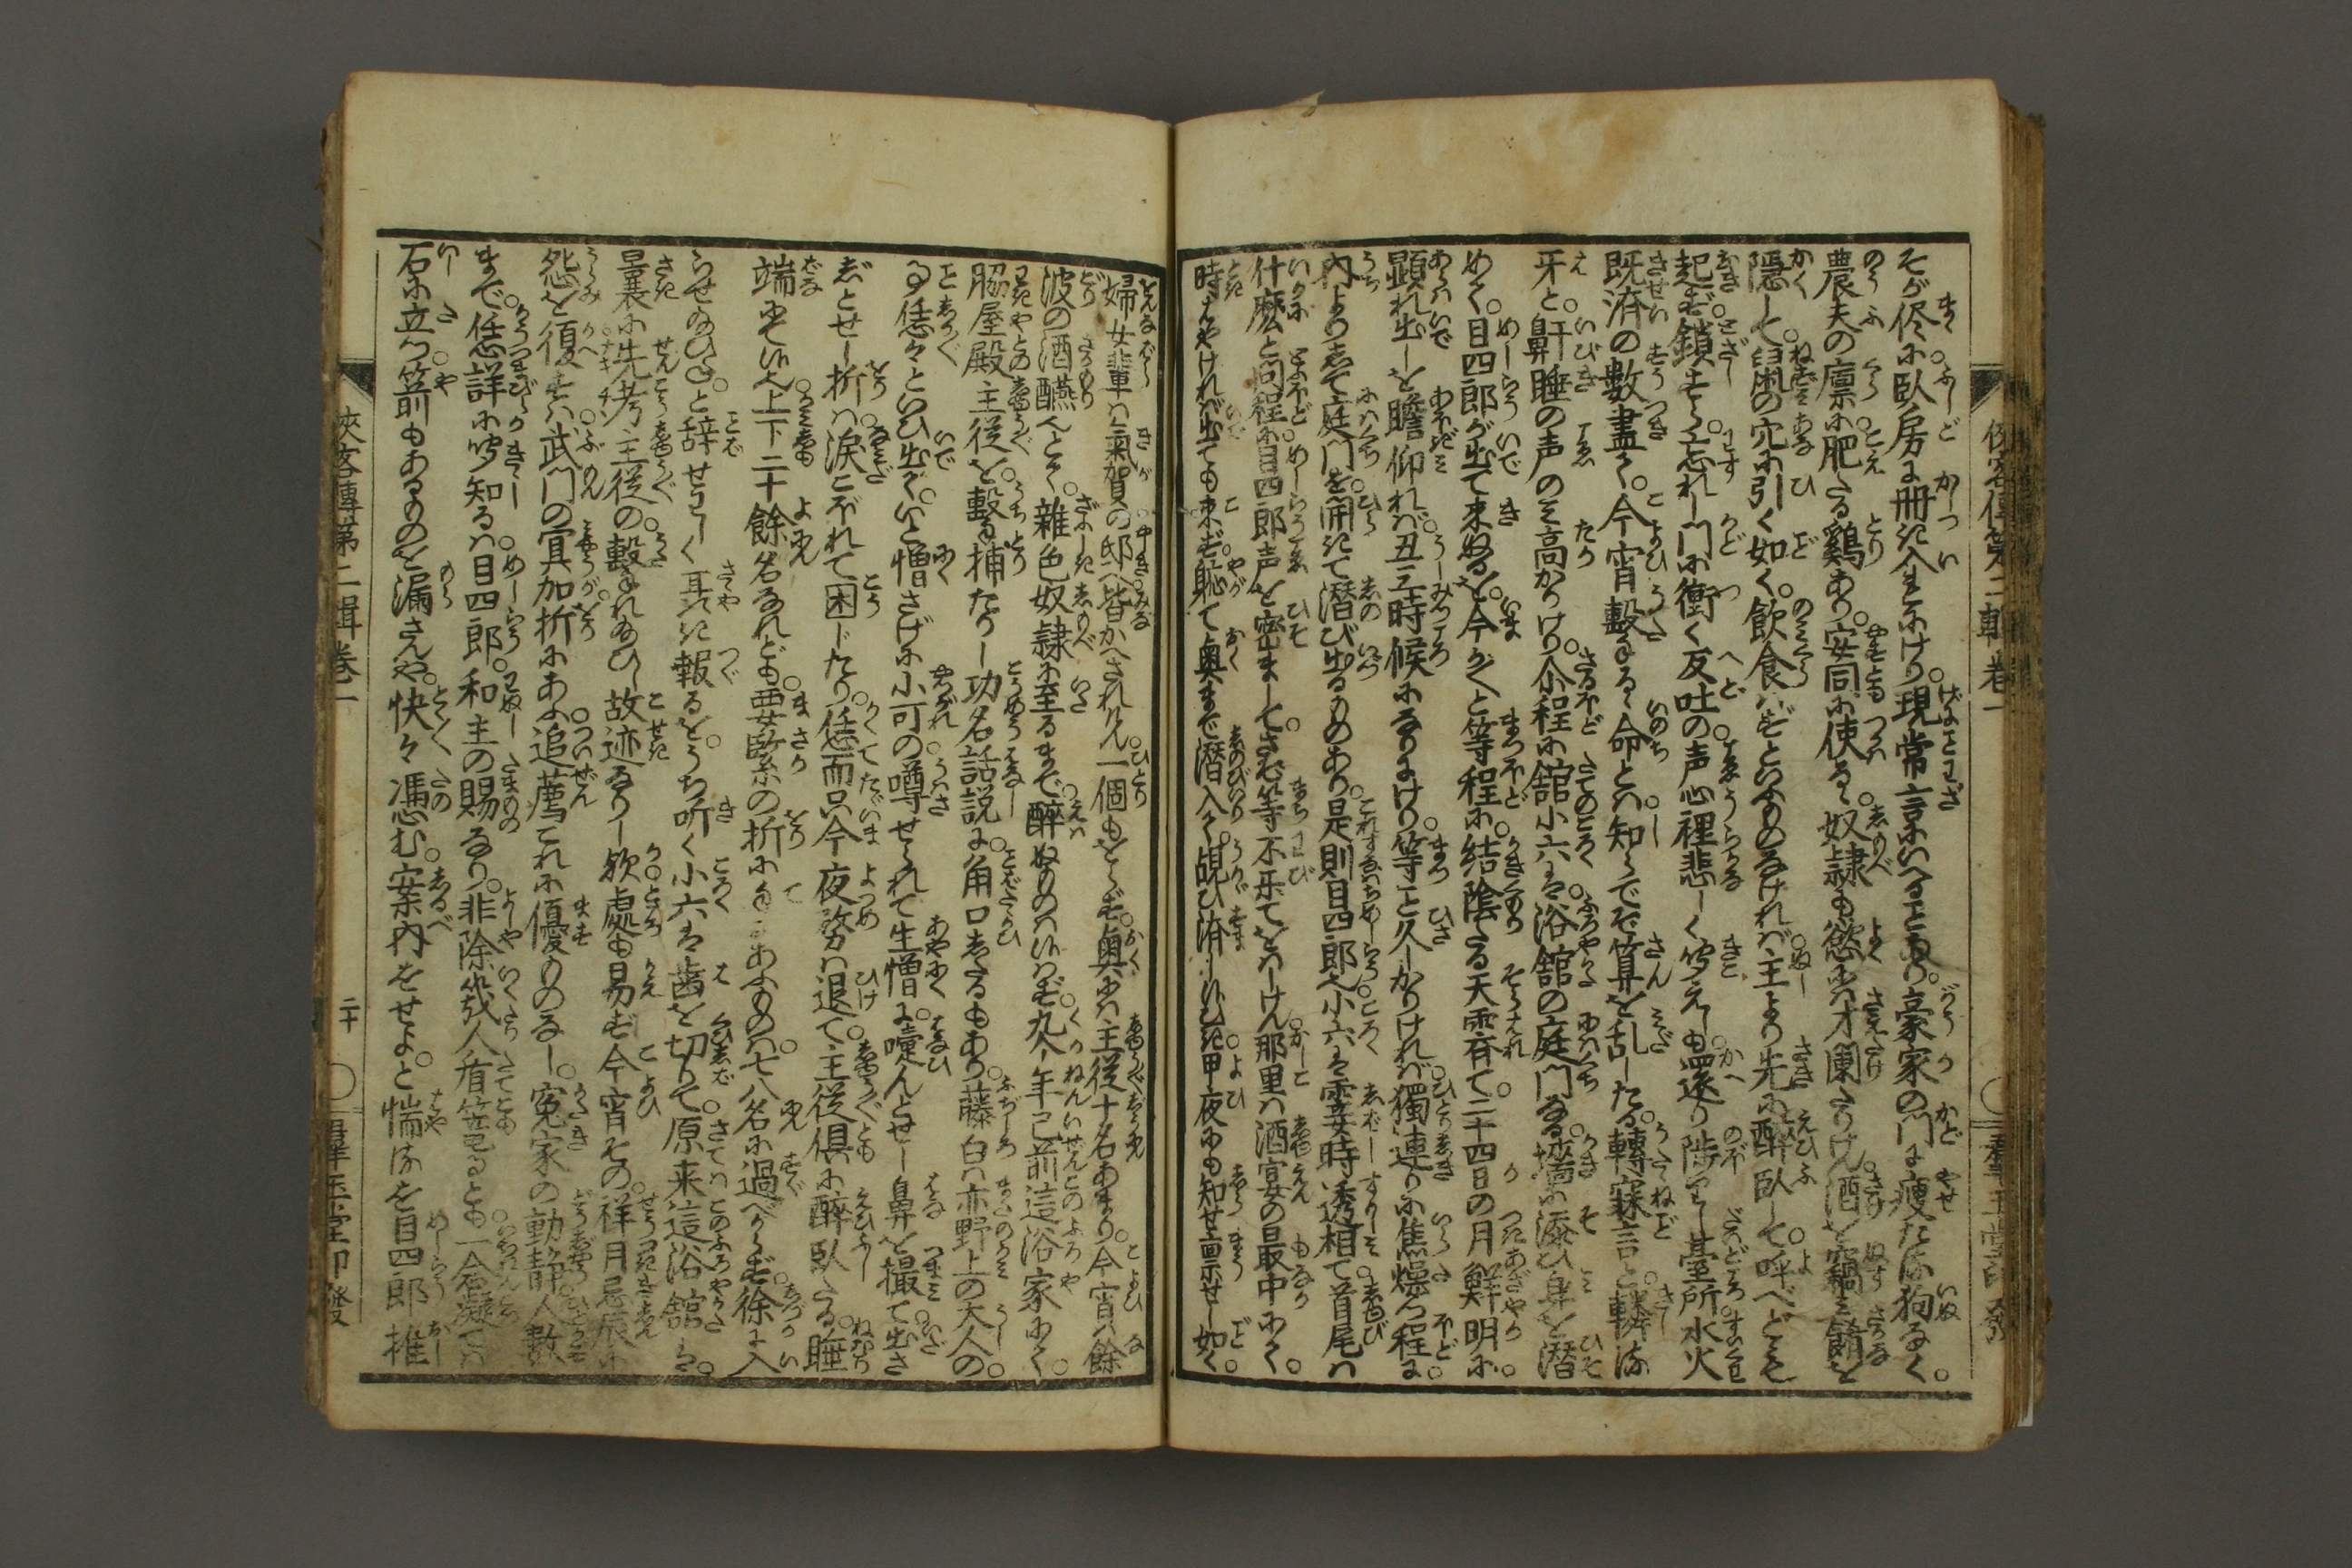 そが侭に臥房に冊き入れにけり。現常言にいへることあり。豪家の門に痩たる狗なく。
農夫の廩に肥たる鶏あり。安同に使るゝ奴隷も慾にハ才闌たりけん。酒を竊ミ餚を
隠して。鼠の穴に引く如く。飲食ハずといふものなけれバ。主より先に酔臥して。呼べどもそ
起ず。鎖もせず忘れし門に衝く反吐の声。心裡悲しく聞えしも。還り陟りし臺所。水火
既済の數盡て。今宵撃るゝ命とハ。知らでぞ算を乱したる。轉寐言と轔る
牙と。鼾睡の声のミ高かりけり。尒程に舘小六ハ。浴舘の庭門なる。墻に添ひ身を潜
めて。目四郎が出て来ぬるを。今か〳〵と等程に。結陰たる天霽て。二十四日の月鮮明に。
顕れ出しを瞻仰れバ。丑三時候になりにけり。等こと久しかりけれバ。獨連りに焦燥つ程に。
内より志て庭門を。開きて潜び出るものあり。是則目四郎也。小六ハ霎時透相て。首尾ハ
什麽と問程に。目四郎声を密まして。さぞ等不楽てをハしけん。那里ハ酒宴の最中にて。
時はやけれバ出ても来ず。〓て奥まで潜入て。覘ひ済し候ひき。甲夜にも知せまゐらせし如く。
婦女輩ハ氣賀の邸へ。皆かへされけん。一個もをらず。奥にハ主従十名あまり。今宵ハ餘
波の酒醼とて。雜色奴隷に至るまで。醉ぬものハ候ハず。九个年已前這浴家にて。
脇屋殿主従を。撃も捕たりし功名話説に。角口志たるもあり。藤白ハ亦野上の大人の
事。恁々といひ出て。いと憎さげに小可の噂せられて生憎に。嚔んとせし鼻を撮て。出さ
じとせし折ハ。涙こぼれて困じたり。恁而只今夜勢ハ退て。主従倶に醉臥たる。睡
端にて候へ。上下二十餘名なれども。要緊の折に手にあふものハ。七八名に過べからず。徐に入
らせ給ひねと。辞せわしく耳語き報るを。うち听く小六ハ歯を切りて。原来這浴舘ハ。
曩に先考主従の。撃れ給ひし故迹なりし欤。處も易ず今宵その。祥月忌辰に
怨を復すハ。武門の冥加折にあふ。追薦これに優ものなし。寃家の動静人數
まで。恁詳に聞知るハ。目四郎。和主の賜なり。非除幾人有るとも。一念凝てハ
石に立つ。箭もあるものを漏さんや。快々馮む。案内をせよと。惴るを目四郎推
侠客傳第二輯巻一
〇群玉堂印發
侠客傳第二輯巻一　二十　〇群玉堂印發